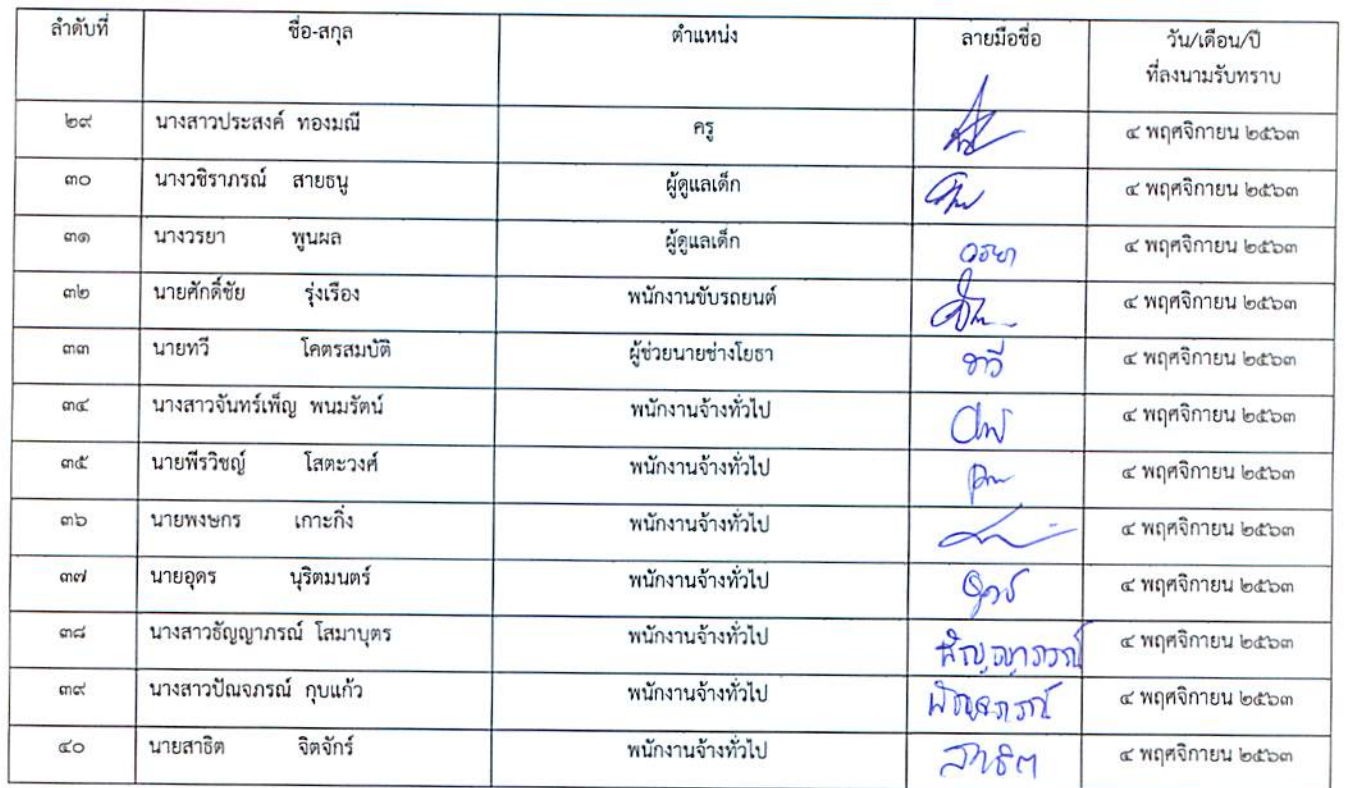 ลำดับที่ ชื่อ-สกุล ตำแหน่ง ลายมือชื่อ วัน/เดือน/ปี
ที่ลงนามรับทราบ
๒๙ นางสาวประสงค์ ทองมณี ครู ๔ พฤศจิกายน ๒๕๖๓
๓๐ นางวชิราภรณ์ สายธนู ผู้ดูแลเด็ก ๔ พฤศจิกายน ๒๕๖๓
๓๑ นางวรยา พูนผล ผู้ดูแลเด็ก วรยา ๔ พฤศจิกายน ๒๕๖๓
๓๒ นายศักดิ์ชัย รุ่งเรือง พนักงานขับรถยนต์ ๔ พฤศจิกายน ๒๕๖๓
๓๓ นายทวี โคตรสมบัติ ผู้ช่วยนายช่างโยธา ทวี ๔ พฤศจิกายน ๒๕๖๓
๓๔ นางสาวจันทร์เพ็ญ พนมรัตน์ พนักงานจ้างทั่วไป ๔ พฤศจิกายน ๒๕๖๓
๓๕ นายพีรวิชญ์ โสตะวงศ์ พนักงานจ้างทั่วไป ๔ พฤศจิกายน ๒๕๖๓
๓๖ นายพงษกร เกาะกิ่ง พนักงานจ้างทั่วไป ๔ พฤศจิกายน ๒๕๖๓
๓๗ นายอุดร นุริตมนตร์ พนักงานจ้างทั่วไป ๔ พฤศจิกายน ๒๕๖๓
๓๘ นางสาวธัญญาภรณ์ โสมาบุตร พนักงานจ้างทั่วไป ธัญญาภรณ์ ๔ พฤศจิกายน ๒๕๖๓
๓๙ นางสาวปัณจภรณ์ กุบแก้ว พนักงานจ้างทั่วไป ๔ พฤศจิกายน ๒๕๖๓
๔๐ นายสาธิต จิตจักร์ พนักงานจ้างทั่วไป สาธิต ๔ พฤศจิกายน ๒๕๖๓